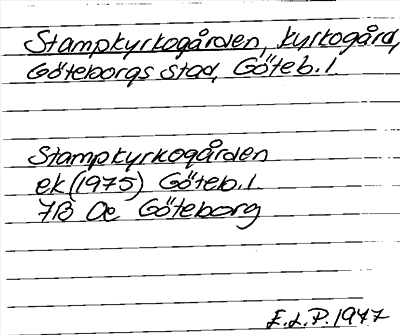 Stampkyrkogården, kyrkogård,
Göteborgs stad, Göteb. l.
Stampkyrkogården
ek (1975) Göteb. l.
7B 0e Göteborg
E.L.P. 1977